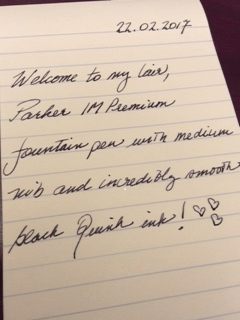 22.02.2017
Welcome to my lair,
Parker IM Premium
fountain pen with medium
nib and incredibly smooth
black Quink ink!